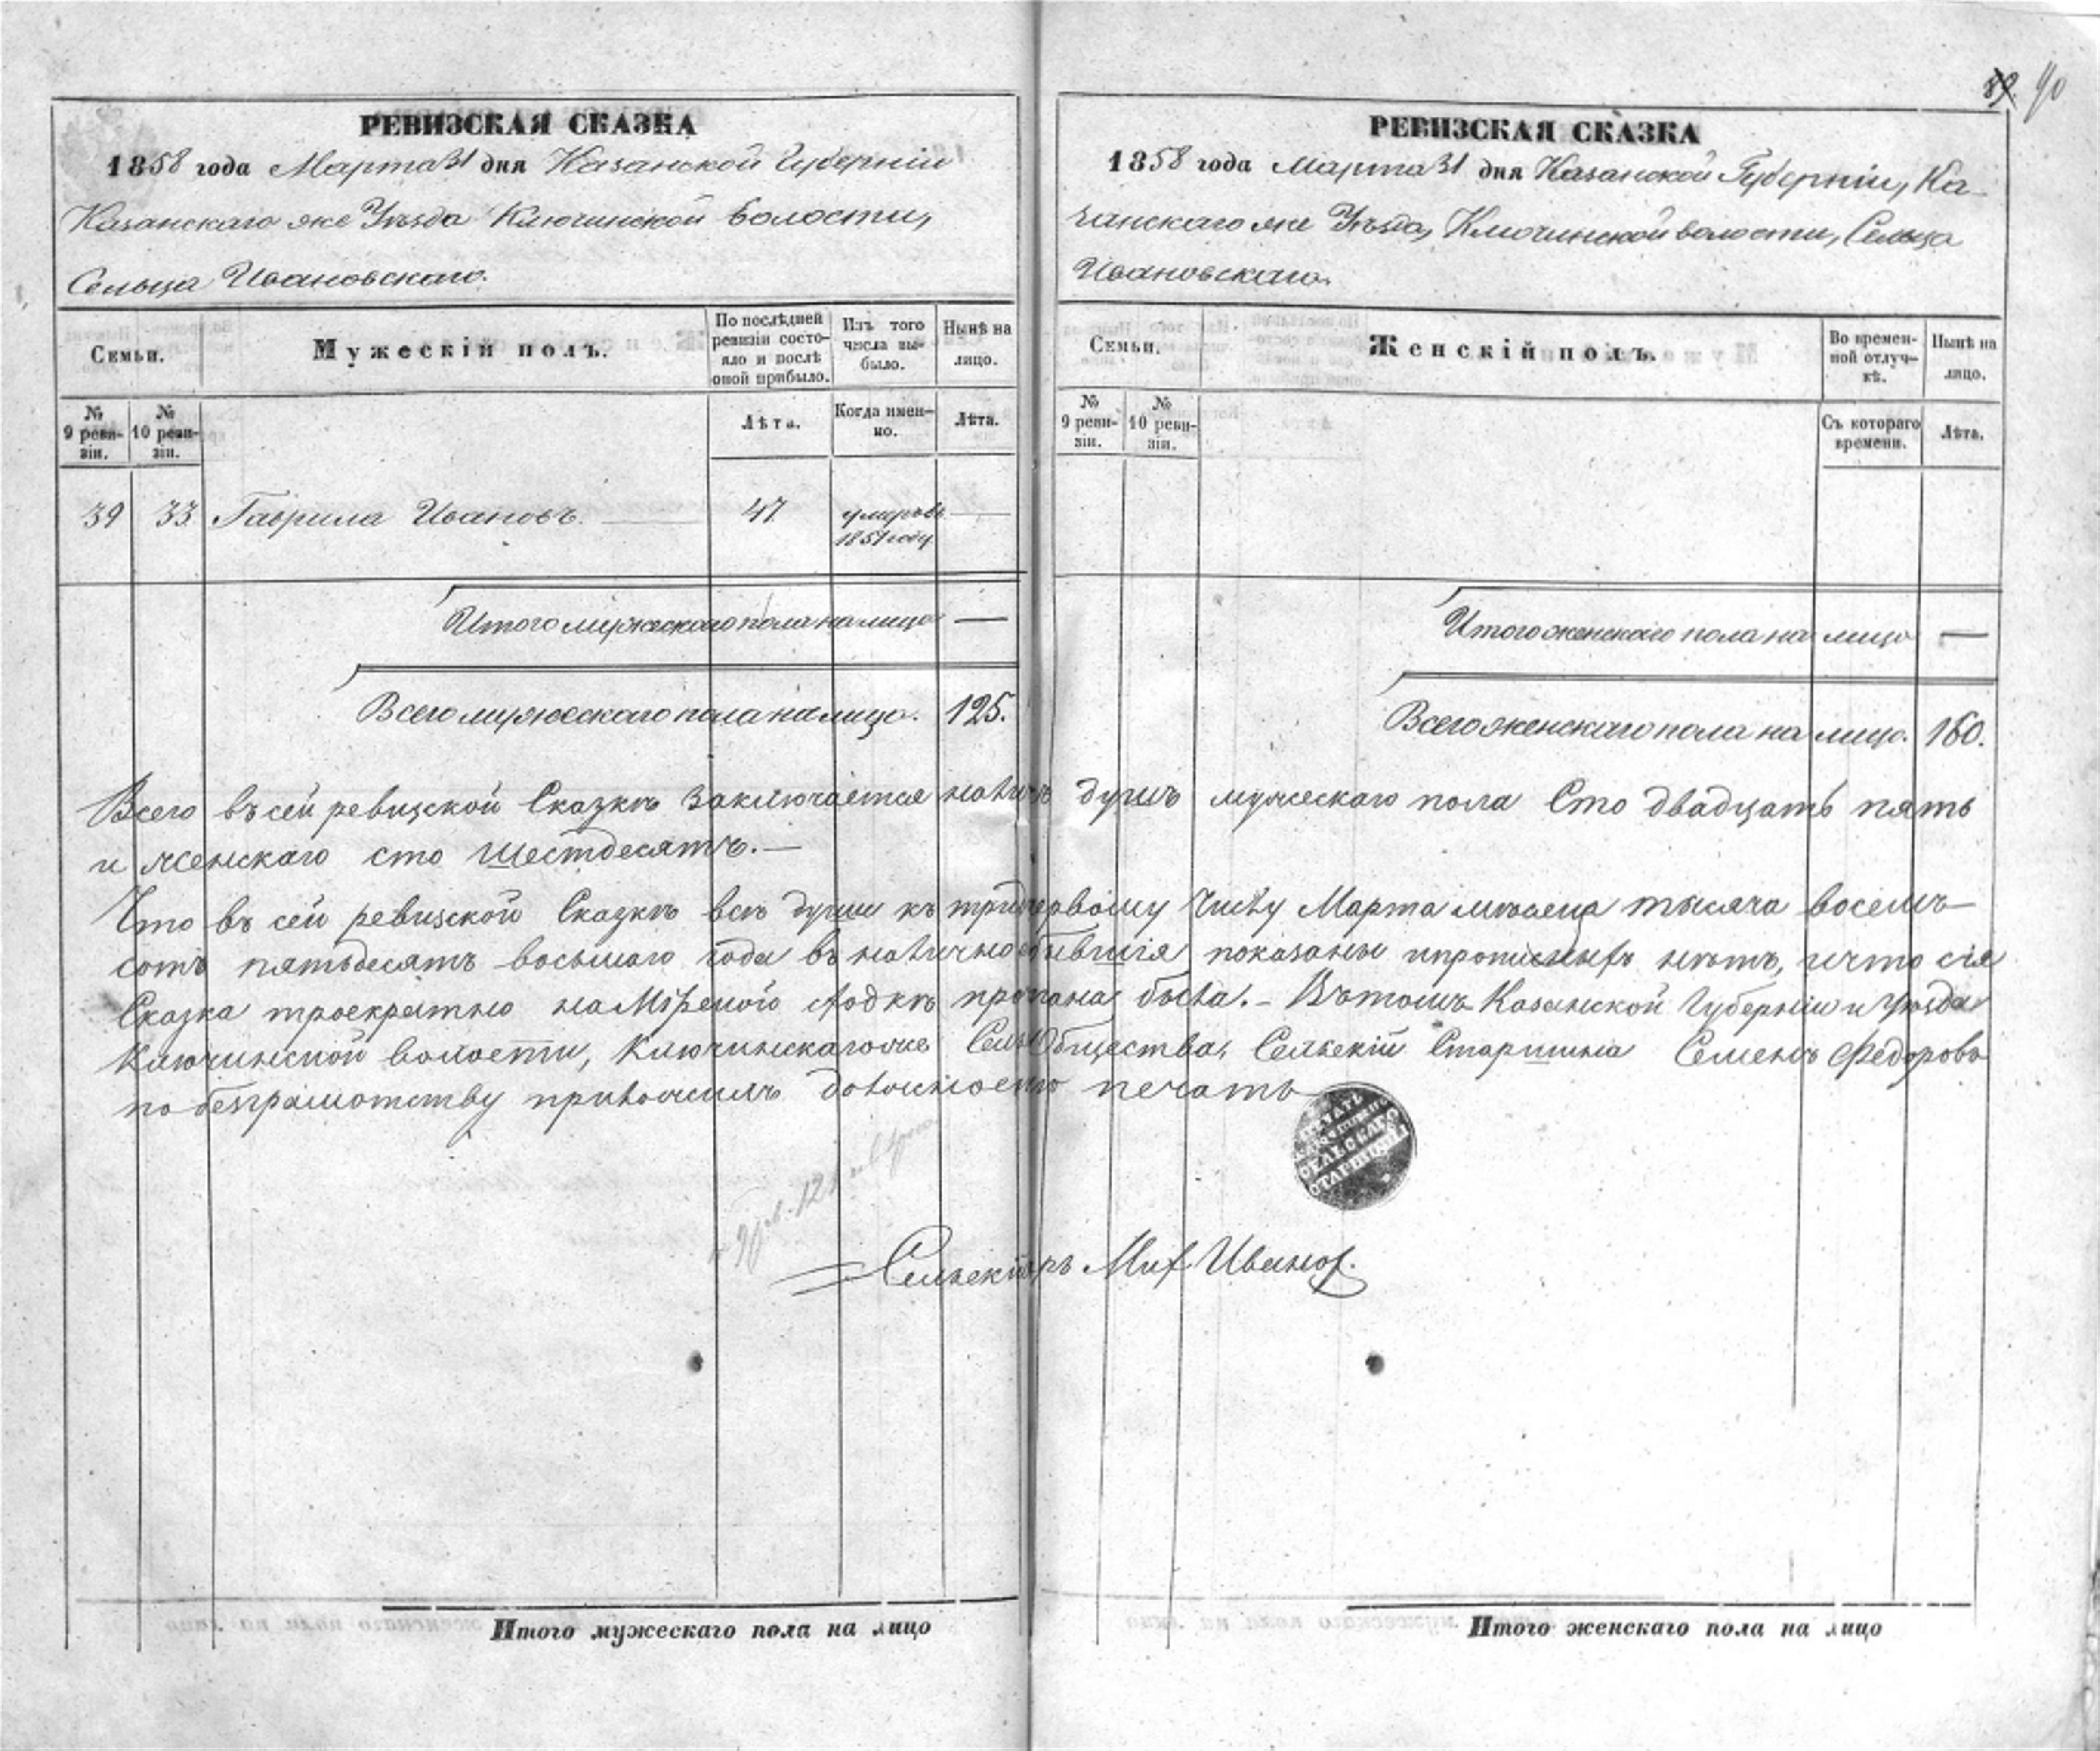 89. 90
РЕВИЗСКАЯ СКАЗКА
1858 года Марта 31 дня Казанской Губерніи
Казанскаго же Уѣзда Ключинской волости,
Сельца Ивановскаго.
Семьи.
Мужескій полъ.
По послѣдней ревизіи состояло и послѣ оной прибыло.
Изъ того числа выбыло.
Нынѣ на лицо.
№ 9 ревизіи.
№ 10 ревизіи.
Лѣта.
Когда именно.
Лѣта.
39 33 Гаврила Ивановъ. 47. умеръ въ
185 году
Итого мужескаго пола на лицо —
Всего мужескаго пола на лицо. 125.
РЕВИЗСКАЯ СКАЗКА
1858 года Марта 31 дня Казанской Губерніи, Ка-
занскаго же Уѣзда, Ключинской волости, Сельца
Ивановскаго.
Семьи.
Женскій полъ.
Во временной отлучкѣ.
Нынѣ на лицо.
№ 9 ревизіи.
№ 10 ревизіи.
Съ котораго времени.
Лѣта.
Итого женскаго пола на лицо —
Всего женскаго пола на лицо. 160.
Всего въ сей ревизской Сказкѣ заключается налич душъ мужескаго пола Сто двадцать пять
и женскаго сто шестдесятъ. —
Что въ сей ревизской Сказкѣ всѣ души къ тридпервому числу Марта мѣсяца тысяча восемь-
сотъ пятьдесятъ восьмаго года въ налично бывшія показаны и прописныхъ нѣтъ, и что сія
Сказка троекратно на Мірской сходкѣ была. – Въ томъ Казанской Губерніи и Уѣзда
Ключинской волости, Ключинскаго же Сель Общества, Сельскій Старшина Семенъ Федоровъ
по безграмотству приложилъ должностную печать
ПЕЧАТЬ
СЕЛЬСКАГО
СТАРШИНЫ
Ивановъ.
Итого мужескаго пола на лицо
Итого женскаго пола на лицо